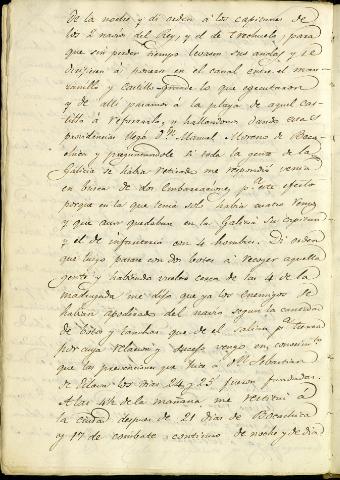 de la noche y di orden á los capitanes de
los 2 navios del Rey, y el de Trechuelo, para
que sin perder tiempo levasen sus anclas y se
dirijiesen á ponerse en el canal entre el man-
zanillo y Castillo-grande lo que egecutaron
y de alli pasamos á la playa de aquel cas-
tillo á reforzarlo, y hallandome dando estas
providencias llegó Dn. Manuel Moreno de Boca-
chica y preguntandole si toda la gente de la
Galicia se habia retirado me respondió venia
en busca de dos embarcaciones pa. este efecto
porque en la que tenia solo habia cuatro remos
y que aun quedaban en la Galicia su capitan
y el de infanteria con 4 hombres. Di orden
que luego pasase con dos botes á recoger aquella
gente y habiendo vuelto cerca de las 4 de la
madrugada me dijo que ya los enemigos se
habian apoderado del navio segun la cantidad
de botes y lanchas que de el salian pa. tierra
por cuya relacion y suceso vengo en conocimto.
que las prevenciones que hice á Dn. Sebastian
de Eslava los dias 24, y 25 fueron fundadas.
A las 4½ de la mañana me retiré á
la ciudad despues de 21 dias de Bocachica
y 17 de combate continuo de noche y de dia